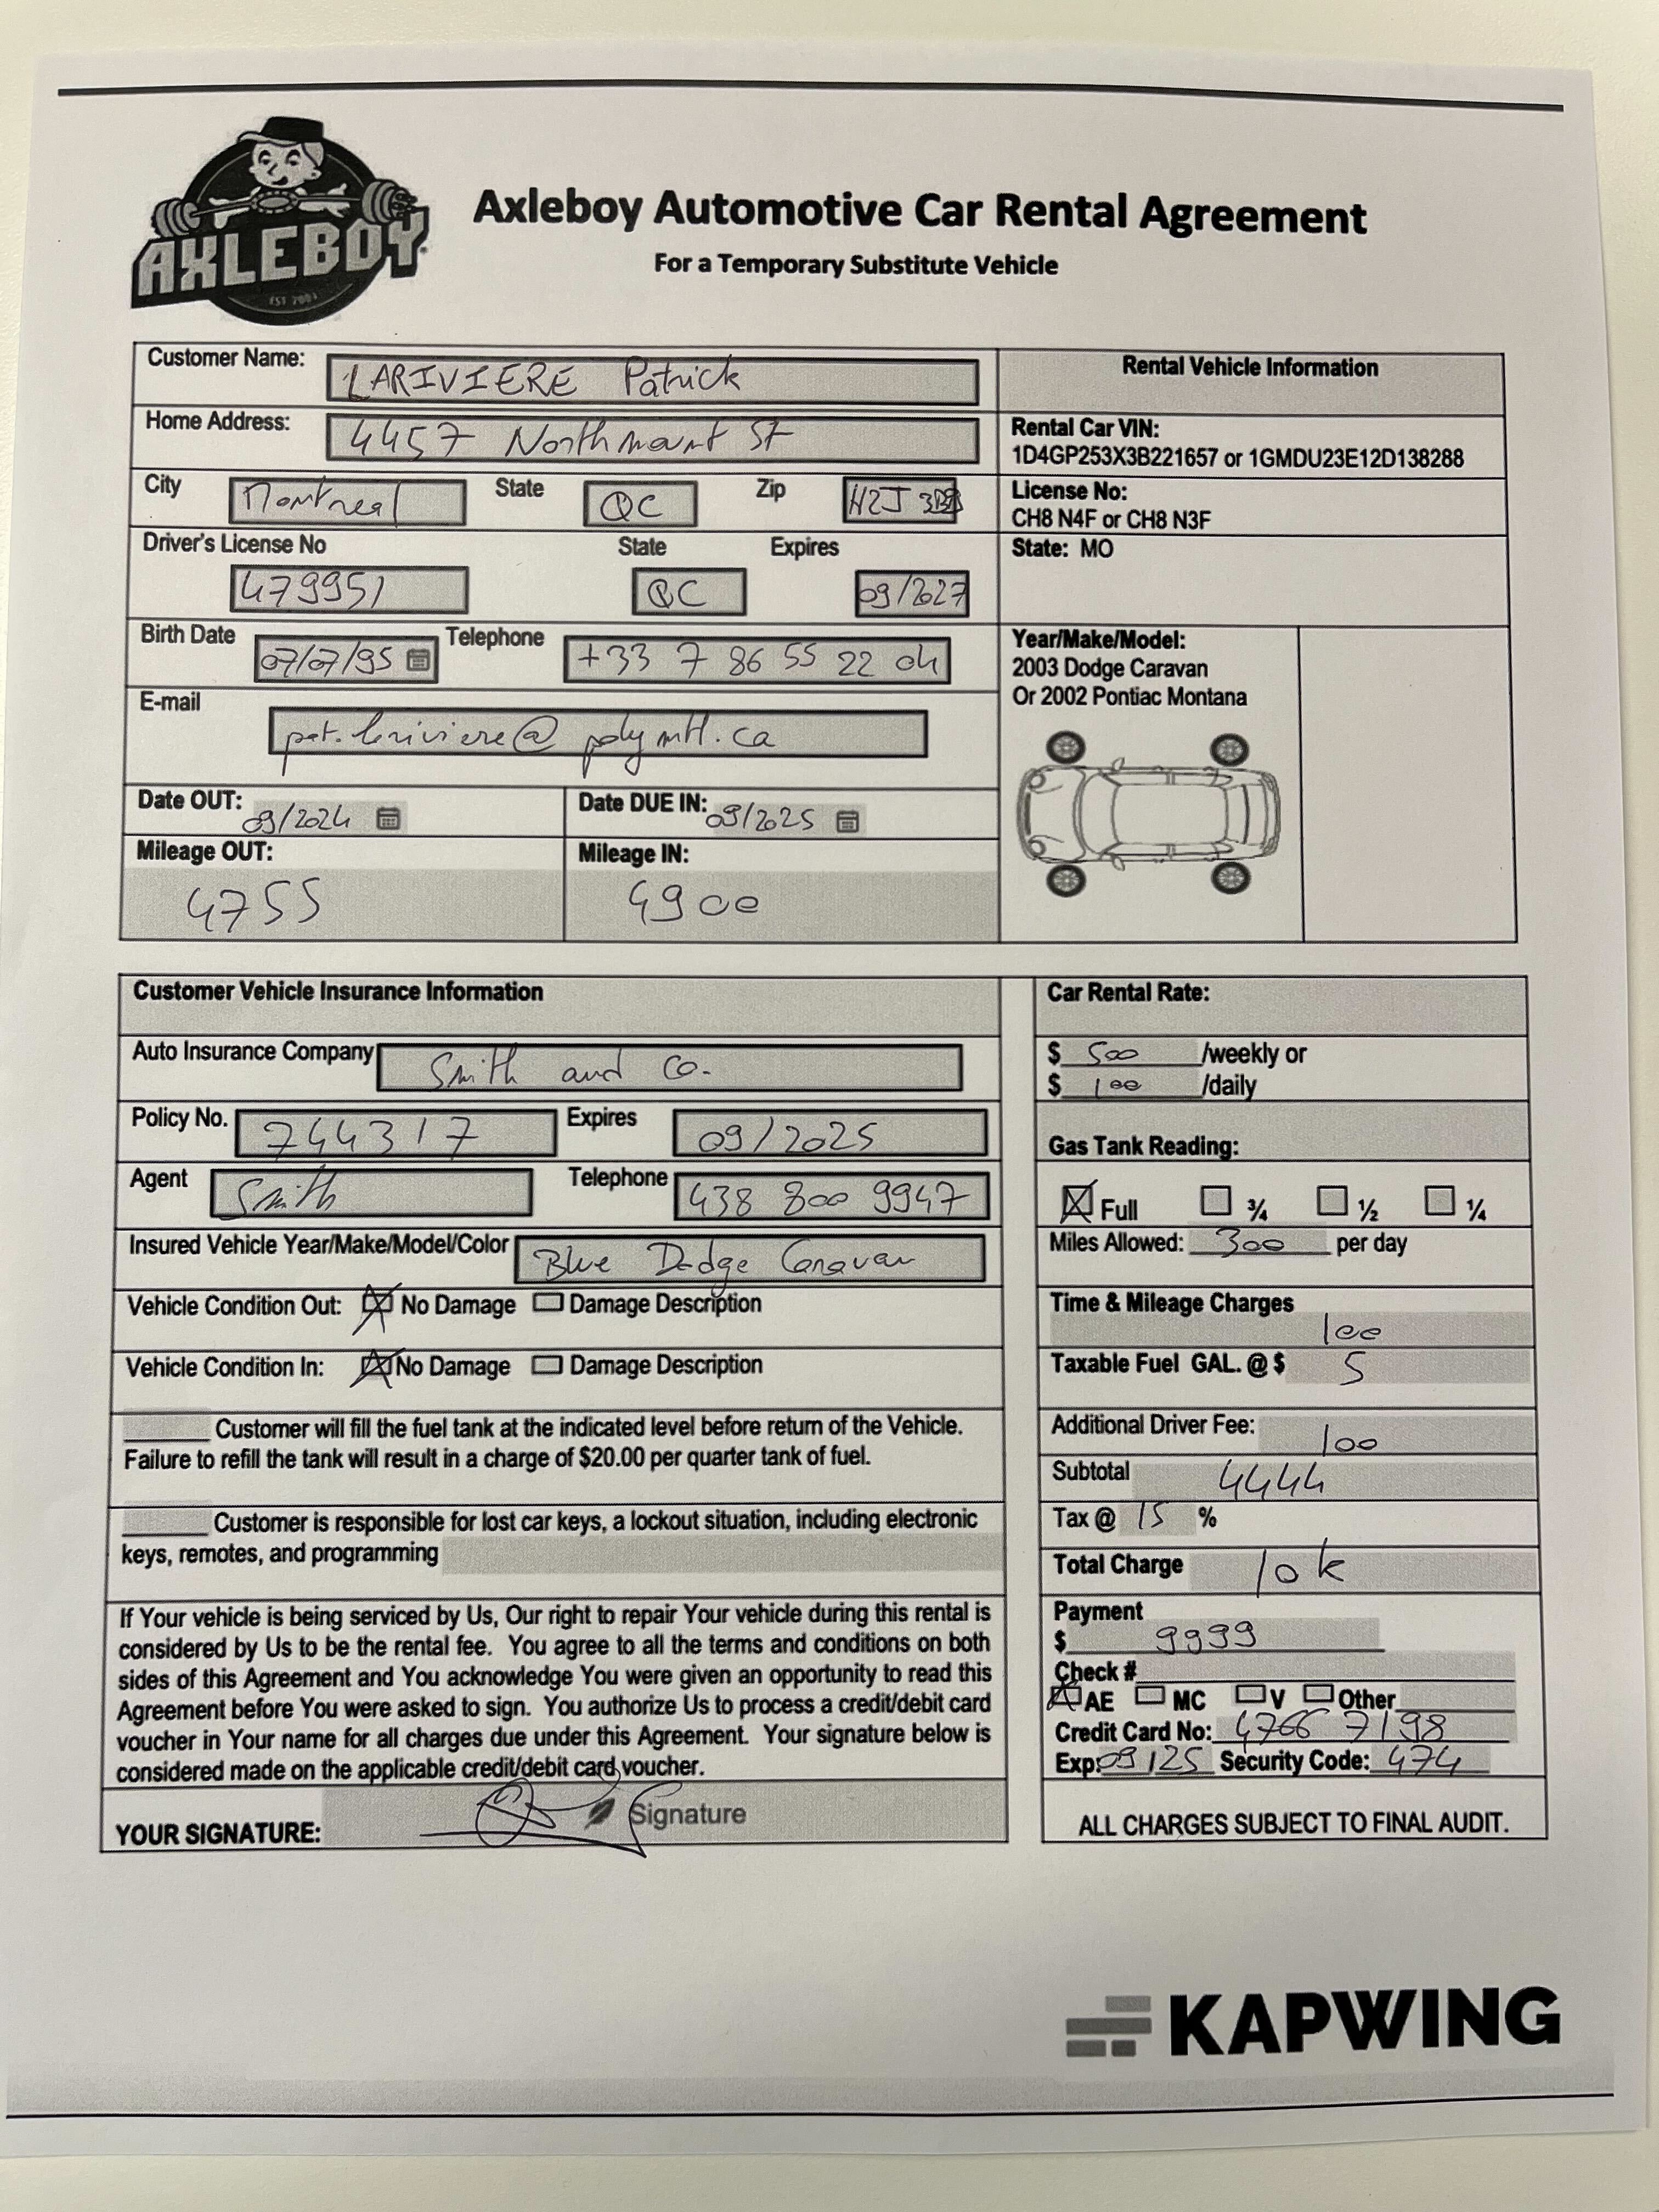 AXLEBOY
EST 2001
Axleboy Automotive Car Rental Agreement
For a Temporary Substitute Vehicle
Customer Name: LARIVIERE Patrick
Home Address: 4457 Northmount St
City Montreal State QC Zip H2J
Driver's License No State Expires
479951 QC 09/2027
Birth Date 07/07/95 Telephone +33 7 86 55 22 04
E-mail
pat.lariviere@polymtl.ca
Date OUT: 09/2024 Date DUE IN: 09/2025
Mileage OUT: Mileage IN:
4755 4900
Rental Vehicle Information
Rental Car VIN:
1D4GP253X3B221657 or 1GMDU23E12D138288
License No:
CH8 N4F or CH8 N3F
State: MO
Year/Make/Model:
2003 Dodge Caravan
Or 2002 Pontiac Montana
Customer Vehicle Insurance Information
Auto Insurance Company Smith and Co.
Policy No. 744317 Expires 09/2025
Agent Smith Telephone 438 800 9947
Insured Vehicle Year/Make/Model/Color Blue Dodge Caravan
Vehicle Condition Out: No Damage Damage Description
Vehicle Condition In: No Damage Damage Description
Customer will fill the fuel tank at the indicated level before return of the Vehicle.
Failure to refill the tank will result in a charge of $20.00 per quarter tank of fuel.
Customer is responsible for lost car keys, a lockout situation, including electronic
keys, remotes, and programming
If Your vehicle is being serviced by Us, Our right to repair Your vehicle during this rental is
considered by Us to be the rental fee. You agree to all the terms and conditions on both
sides of this Agreement and You acknowledge You were given an opportunity to read this
Agreement before You were asked to sign. You authorize Us to process a credit/debit card
voucher in Your name for all charges due under this Agreement. Your signature below is
considered made on the applicable credit/debit card voucher.
YOUR SIGNATURE: Signature
Car Rental Rate:
$ 500 /weekly or
$ 100 /daily
Gas Tank Reading:
Full ¾ ½ ¼
Miles Allowed: 300 per day
Time & Mileage Charges
100
Taxable Fuel GAL. @ $ 5
Additional Driver Fee: 100
Subtotal 4444
Tax @ 15 %
Total Charge 10k
Payment
$ 9999
Check #
AE MC V Other
Credit Card No: 4766 7198
Exp: 09/25 Security Code: 474
ALL CHARGES SUBJECT TO FINAL AUDIT.
KAPWING